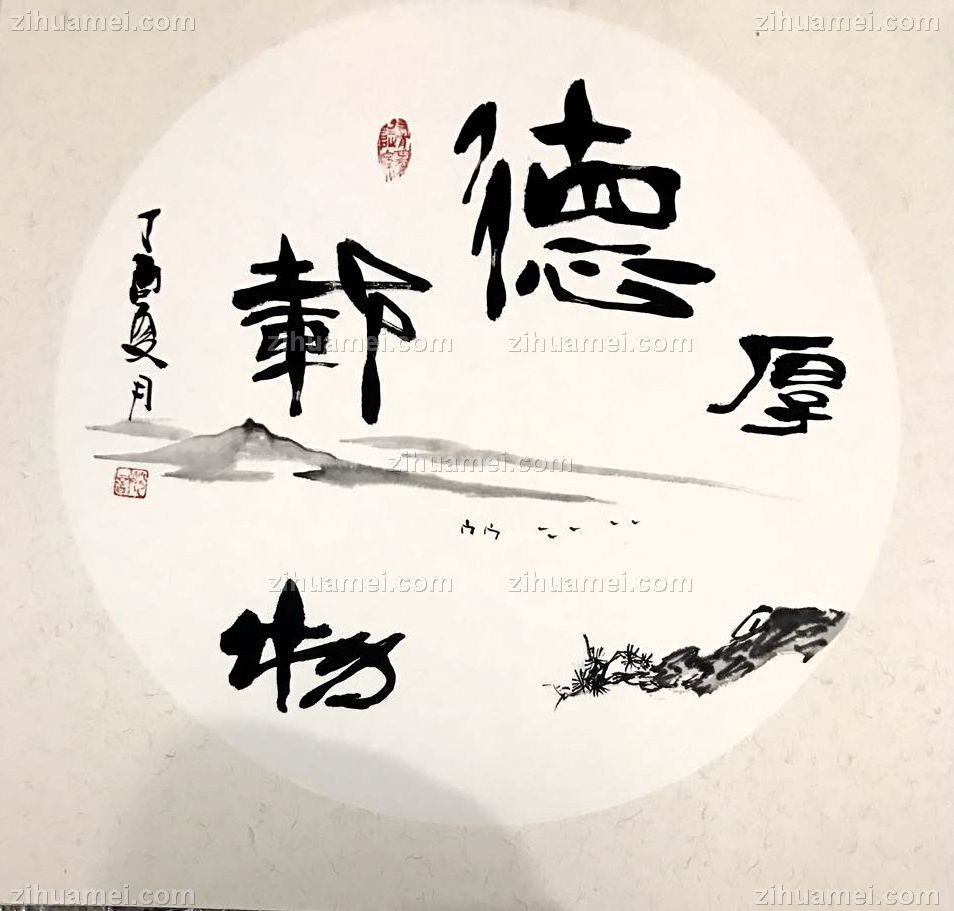 厚
德
載
物
丁酉夏月
zihuamei.com
zihuamei.com
zihuamei.com
zihuamei.com
zihuamei.com
zihuamei.com
zihuamei.com
zihuamei.com
zihuamei.com